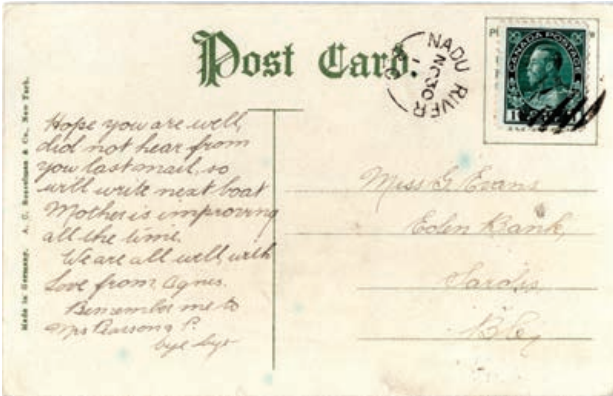 Post Card
NADU RIVER
CANADA POSTAGE
Made in Germany. A. C. Bosselman & Co., New York.
Hope you are well,
did not hear from
you last mail, so
will write next boat
Mother is improving
all the time.
We are all well with
Love from Agnes.
Remember me to
Mrs Pearson &
bye bye
Miss G Evans
Eden Bank,
Sardis
B.C.